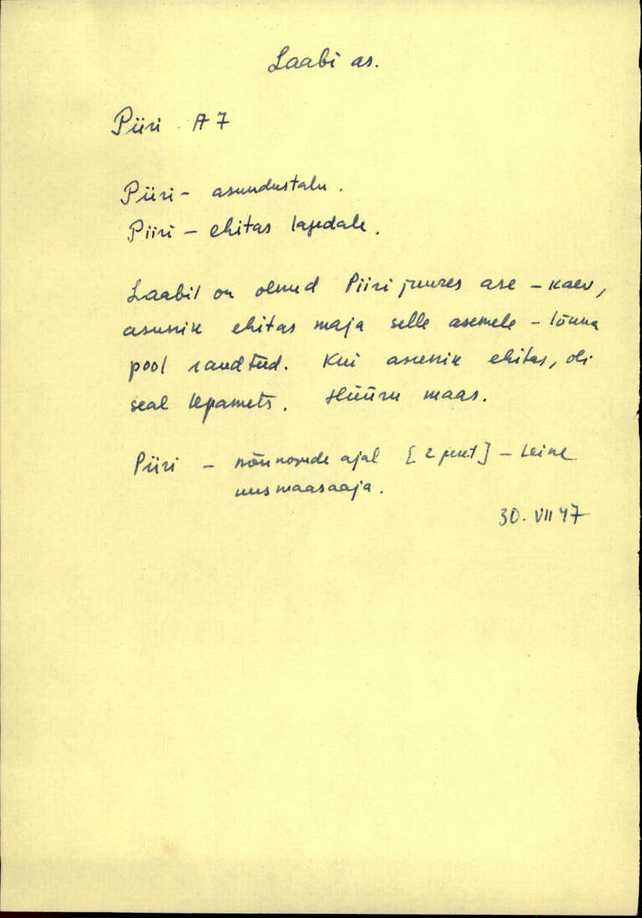 Laabi as.
Piiri A7
Piiri - asundustalu.
Piiri - ehitas lagedale.
Laabil on olnud Piiri juures ase - kaev,
asunik ehitas maja selle asemele - lõuna
pool raudteed. Kui asunik ehitas, oli
seal lepamets. Hüüru maas.
Piiri - nõunogude ajal [2 ] - teine
uusmaasaaja.
30. VII 47